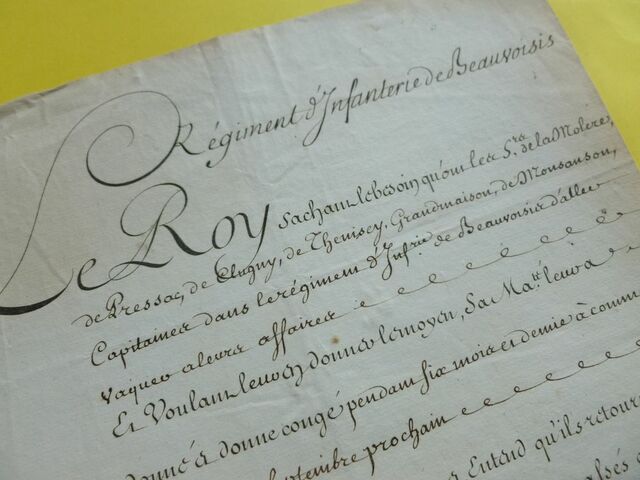 Régiment d'Infanterie de Beauvoisis
Le Roy sachant le besoin qu'ont les S.rs de la Molere,
de Pressac, de Clugny, de Thenisey, Grandmaison, de Monsanson,
Capitaines dans le régiment d'Inf.rie de Beauvoisis d'aller
vaquer a leurs affaires
Et Voulant leur en donner le moyen, Sa Ma.té leur a
donné et donne congé pendant six mois et demie à comm
septembre prochain
Entend qu'ils retour